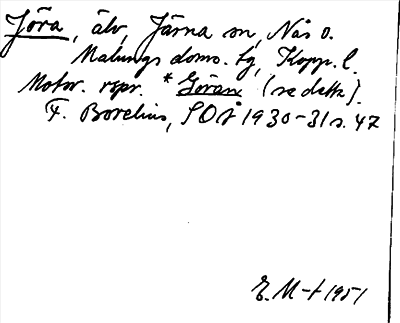 Jöra, älv, Järna sn, Nås o.
Malungs doms. tg, Kopp. l.
Motsv. rspr. * Göran (se detta).
F. Borelius, SOÅ 1930-31 s. 47
E. M-t 1951